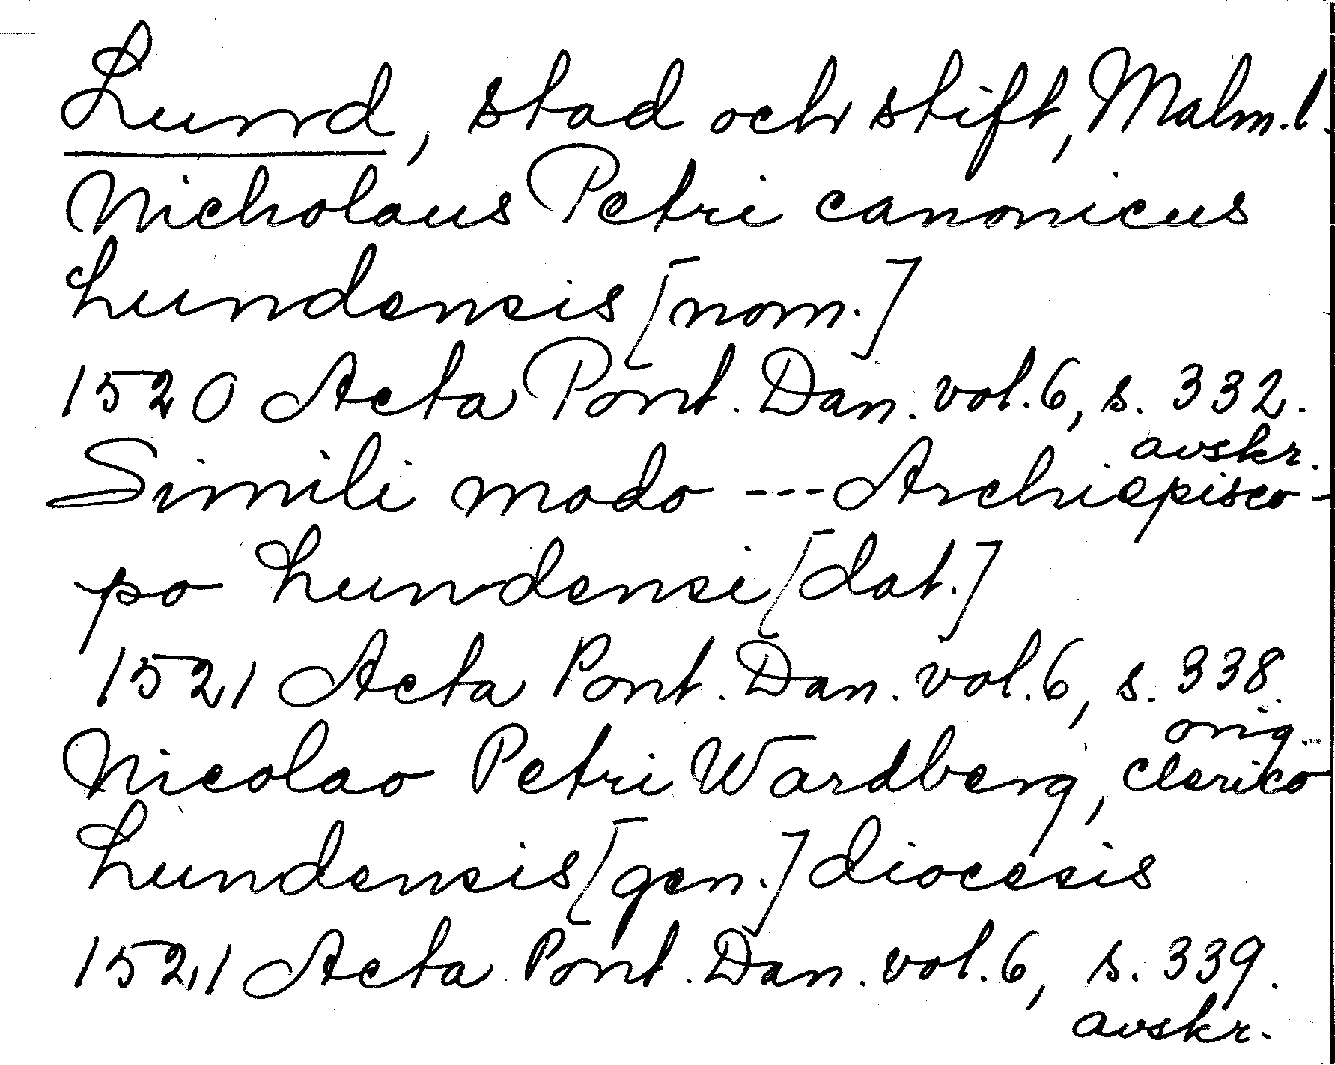 Lund, stad och stift, Malm. l.
Nicholaus Petri canonicus
Lundensis [nom.]
1520 Acta Pont. Dan. vol. 6, s. 332.
avskr.
Simili modo --- Archiepisco-
po Lundensi [dat.]
1521 Acta Pont. Dan. vol. 6, s. 338.
orig.
Nicolao Petri Wardberg, clerico
Lundensis [gen.] diocesis
1521 Acta Pont. Dan. vol. 6, s. 339.
avskr.